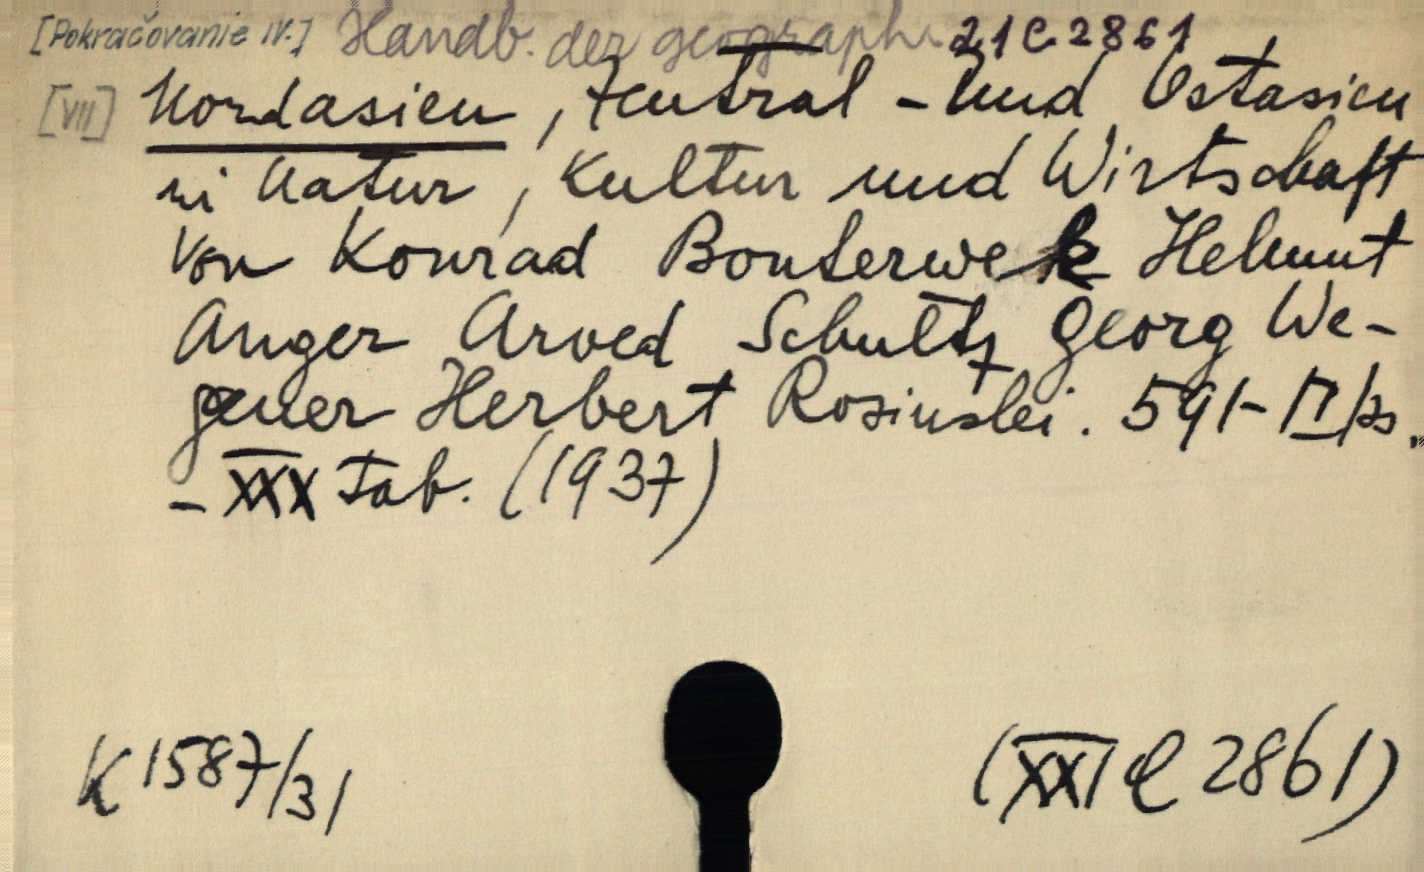 [Pokračovanie IV.] Handb. der geograph. 21 C 2861
[VII] Nordasien, Zentral- und Ostasien
in Natur, Kultur und Wirtschaft
von Konrad Bouterwek Helmut
Anger Arved Schultz Georg We-
gener Herbert Rosinski. 591-
- XXX Tab. (1937)
K 1587/31
(XXI C 2861)